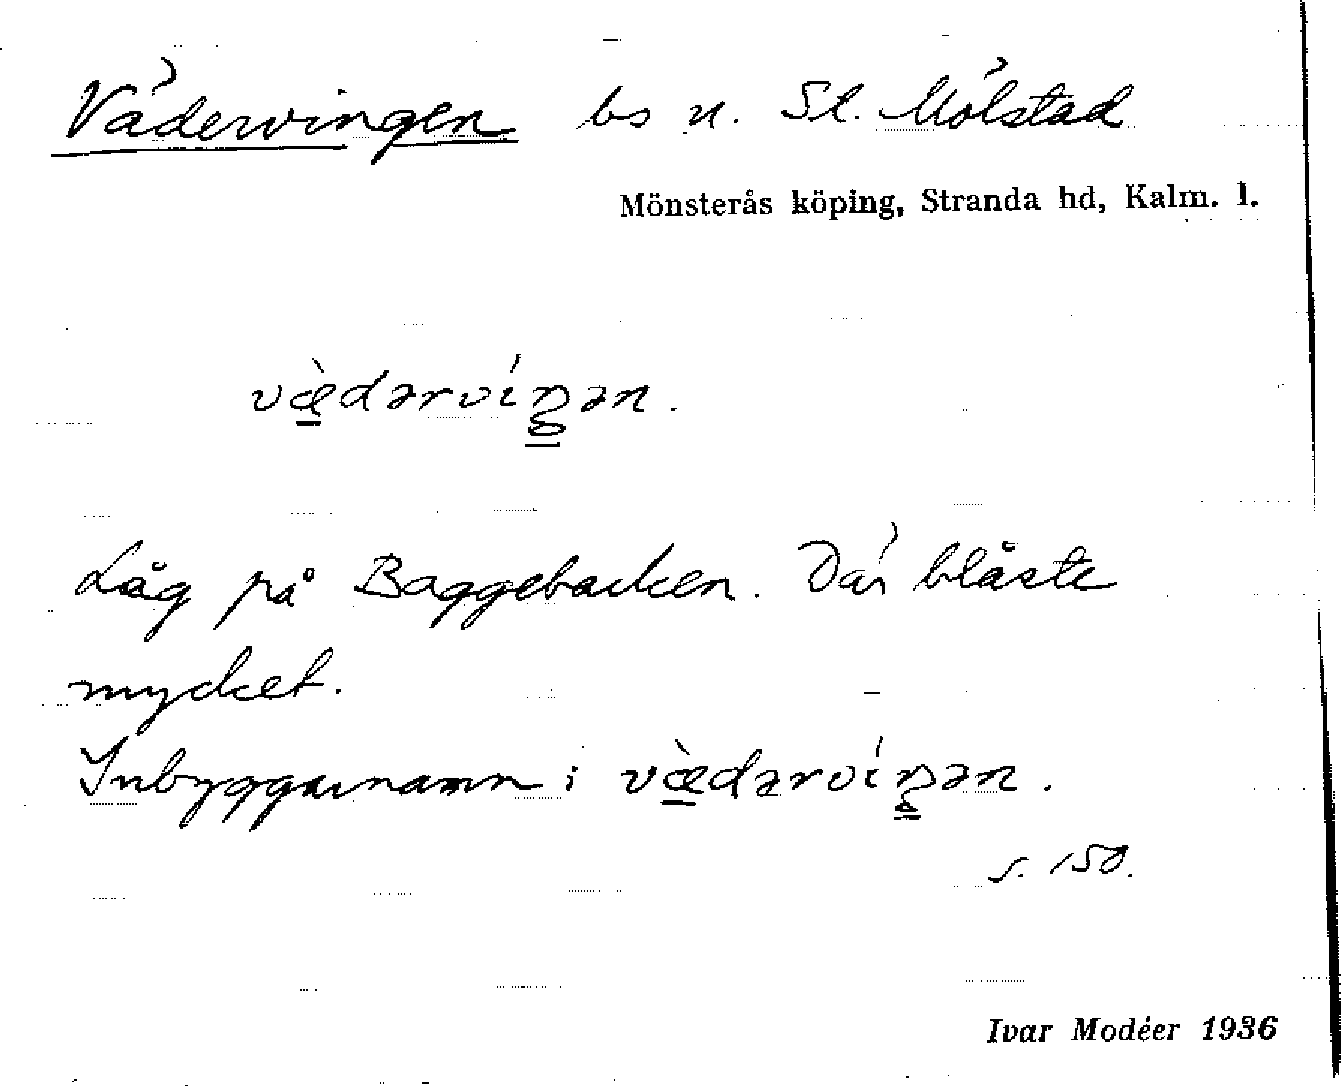 Vädervingen bs n. St. Mölstad
Mönsterås köping, Stranda hd, Kalm. l.
væ̀dərvíŋən.
Låg på Baggebacken. Där blåste
mycket.
Inbyggarnamn i væ̀dərvíŋən.
s. 150.
Ivar Modéer 1936